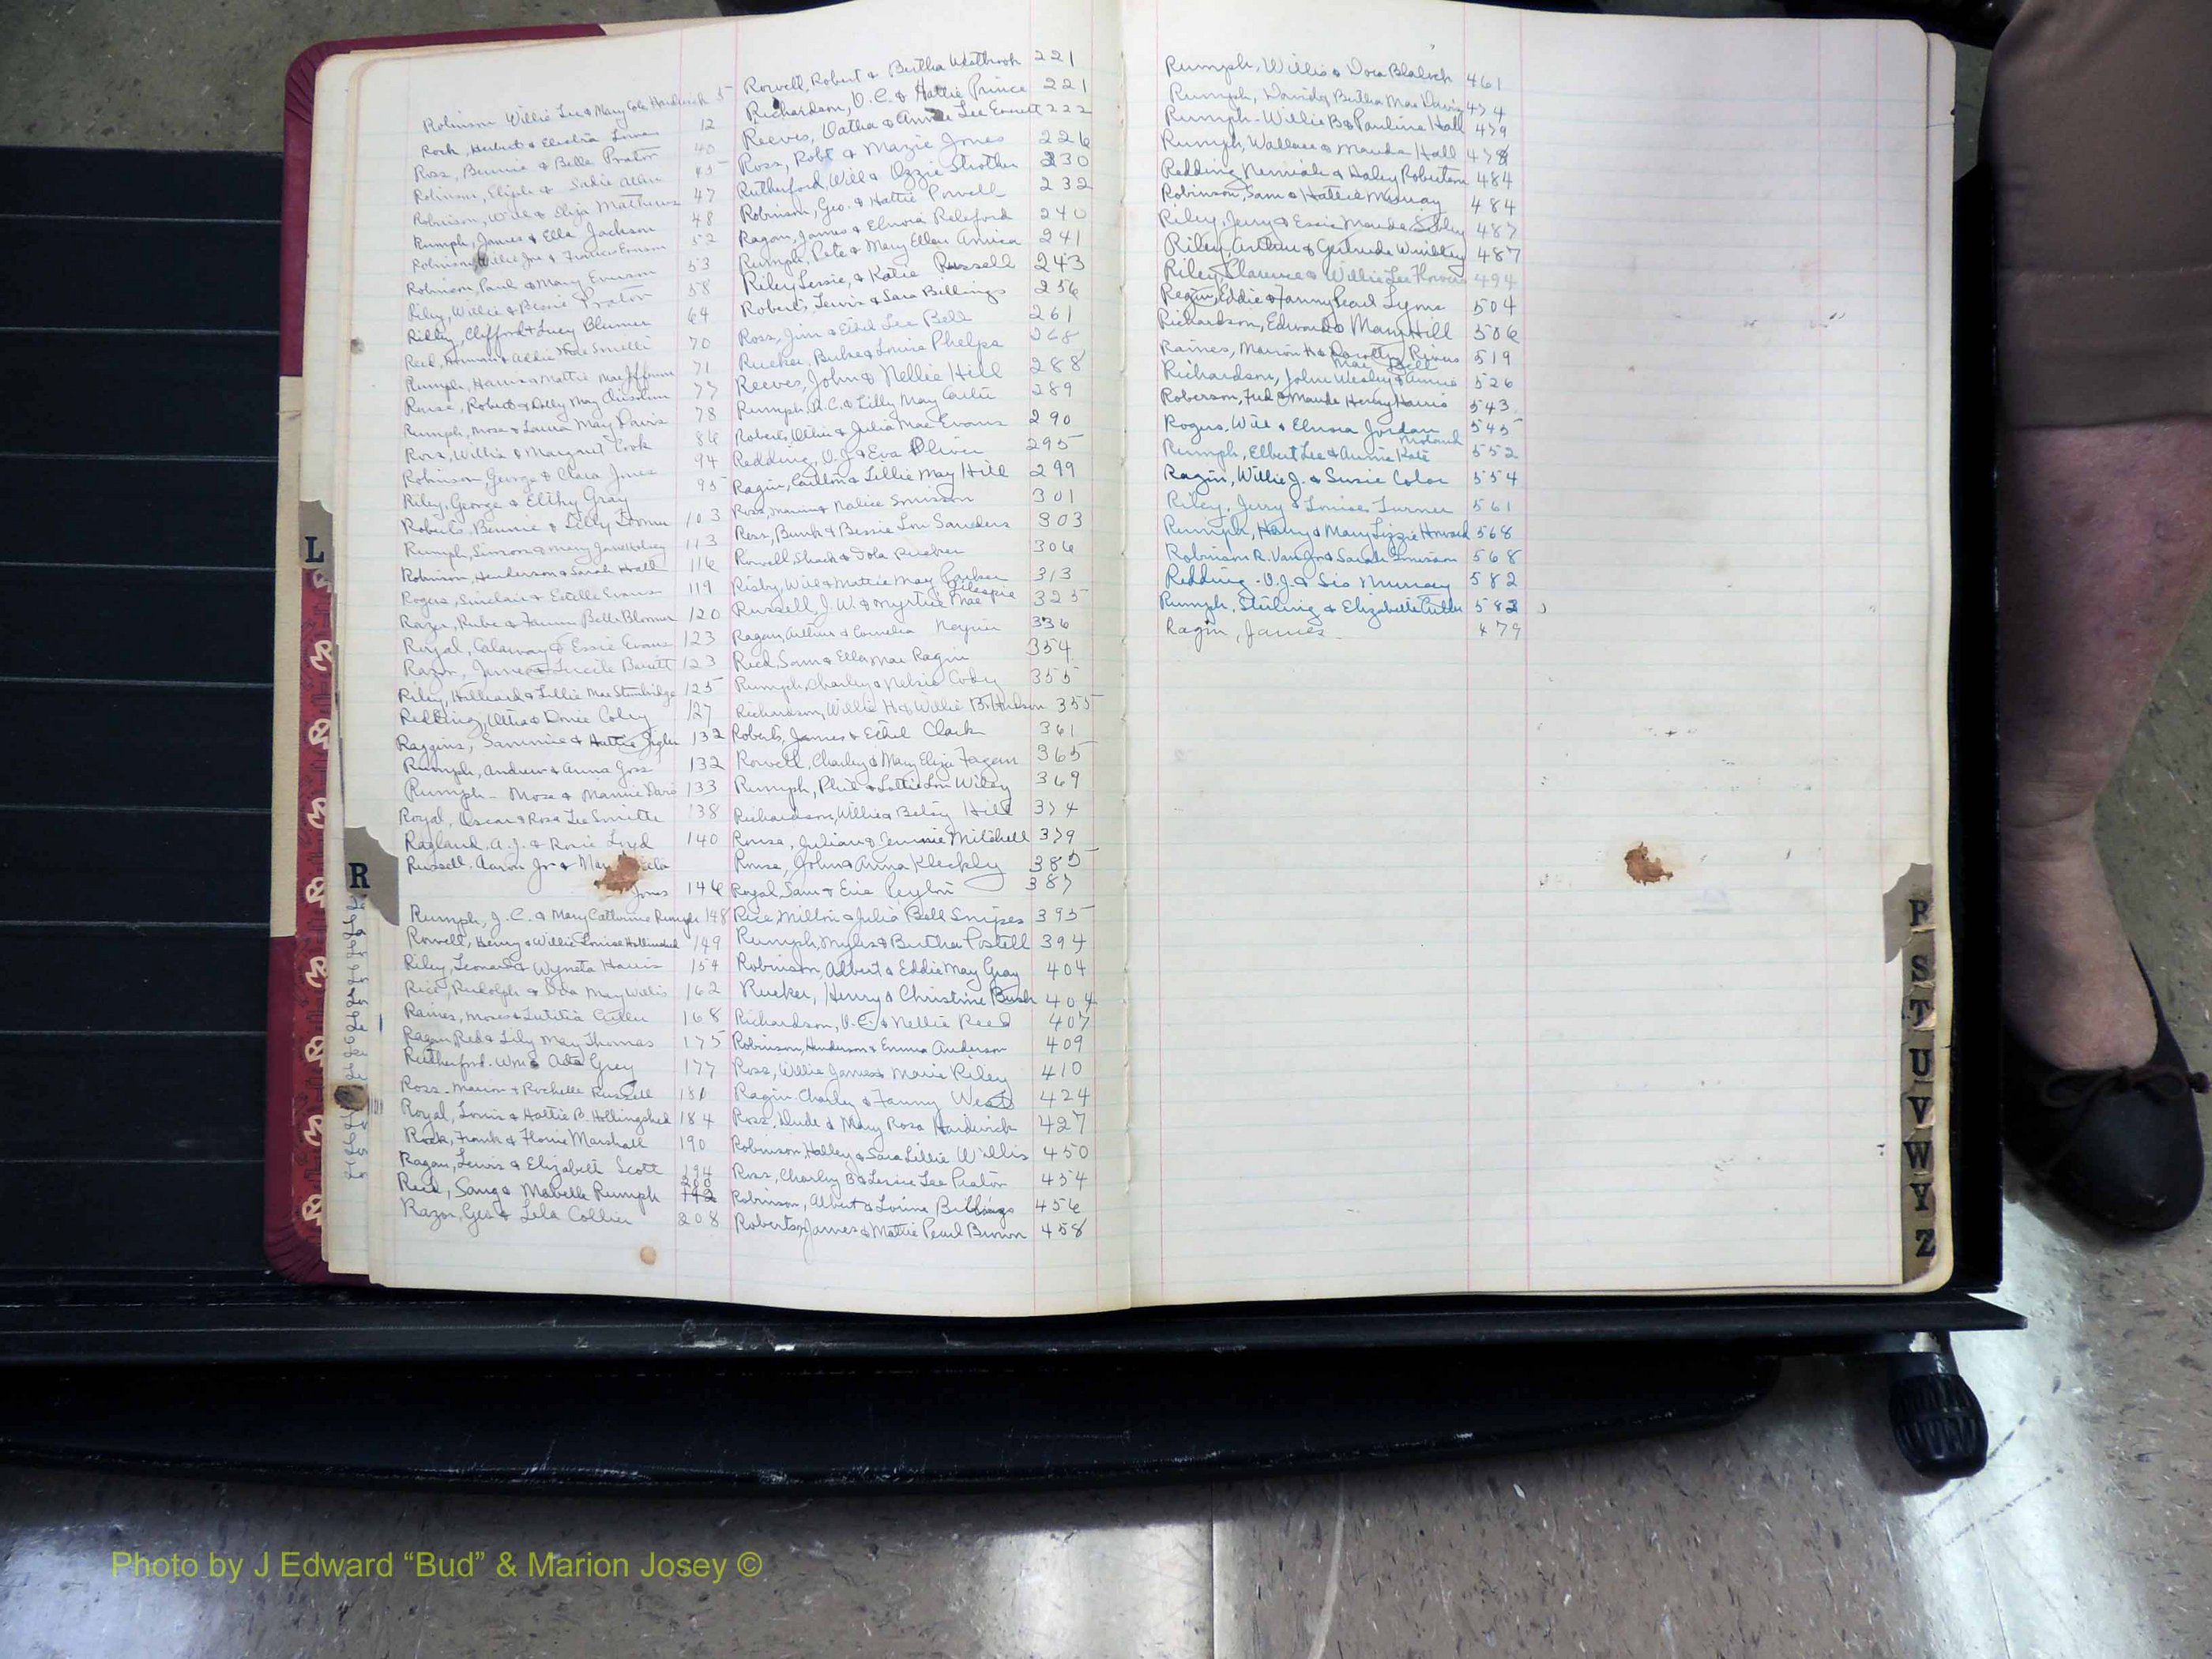 Robinson Willie Lee & Mary Cole Hardwick 5
Rock, Herbert & Electra 12
Ross, Bennie & Belle Prator 40
Robinson, Elijah & Sadie Allen 45
Robinson, Will & Eliza Mathews 47
Rumph, James & Ella Jackson 48
Robinson, Willie Joe & 52
Robinson, Paul & Mary Everson 53
Riley, Willie & Bessie Prator 58
Ridley, Clifford & Lucy Blumer 64
Reed, & Addie 70
Rumph, Harris & Mattie Mae Jefferson 71
Rouse, Robert & Dolly May Chisolum 77
Rumph, Mose & Laura May Davis 78
Ross, Willie & Margaret Cook 86
Robinson George & Clara Jones 94
Riley, George & Elithy Gray 95
Roberts, Bennie & Lilly 103
Rumph, Simon & Mary Jane 113
Robinson, Henderson & Sarah Hall 116
Rogers, Sinclair & Estelle Evans 119
Razor, Rube & Fannie Belle Bloomer 120
Royal, Calaway & Essie Evans 123
Razor, James & Lucile Barrett 123
Riley, Hilliard & Lillie Mae Stembridge 125
Redding, Otha & Donie Coley 127
Raggins, Sammie & Hattie Sigler 132
Rumph, Andrew & Anna Goss 132
Rumph - Mose & Mannie Davis 133
Royal, Oscar & Rosa Lee Smith 138
Ragland, A. J. & Rosie Loyd 140
Russell. Aaron Jr &
Jones 146
Rumph, J. C. & Mary Catherine Rumph 148
Rowell, Henry & Willie Louise Hollinshed 149
Riley, Leonard & Wyneta Harris 154
Rice, Rudolph & Dora May Willis 162
Raines, Moses & Lutitia Culler 168
Ragan, Red & Lily May Thomas 175
Rutherford. Wm & Ada Grey 177
Ross - Marion & Rochelle Russell 181
Royal, Louis & Hattie B. Hollingshed 184
Rock, Frank & Florrie Marshall 190
Ragan, Lewis & Elizabeth Scott 194
Reid, Sang & Mabelle Rumph 200
Razor, Geo & Lela Collier 208
Rowell, Robert & Bertha Westbrook 221
Richardson, O. C. & Hattie Prince 221
Reeves, Oatha & Annie Lee Everett 222
Ross, Robt & Mazie Jones 226
Rutherford, Will & Ozzie Strother 230
Robinson, Geo. & Hattie Powell 232
Ragan, James & Elnora Releford 240
Rumph, Pete & Mary Ellen Amica 241
Riley Lessie, & Katie Russell 243
Roberts, Lewis & Sara Billings 256
Ross, Jim & Ethel Lee Bell 261
Rucker, Burke & Louise Phelps 268
Reeves, John & Nellie Hill 288
Rumph. R. C. & Lilly May Carter 289
Roberts, Ollie & Julia Mae Evans 290
Redding, O. J. & Eva Oliver 295
Ragin, Carlton & Lillie May Hill 299
Ross, Marion & Nalice Smisson 301
Ross, Bunk & Bessie Lou Sanders 303
Rowell Shack & Iola Rucker 306
Risby, Will & Mattie May Barber 313
Russell, J. W. & Myrtie Mae Gillespie 325
Ragan, Arthur & Cornelia 336
Reed, Sam & Ella Mae Ragin 354
Rumph, Charley & Nelsie Cody 355
Richardson, Willie H & Willie B. 355
Roberts, James & Ethel Clark 361
Rowell, Charley & Mary Eliza Fagan 365
Rumph, Phil & Lottie Lou Wiley 369
Richardson, Willie & Betsy Hill 374
Rouse, Julian & Jennie Mitchell 379
Rouse, John & Anna Kleckly 385
Royal, Sam & Evie Peyton 387
Rice, Milton & Julia Bell Snipes 395
Rumph, Myles & Bertha Postell 394
Robinson, Albert & Eddie May Gray 404
Rucker, Henry & Christine Bush 404
Richardson, O. C. & Nellie Reed 407
Robinson, Henderson & Emma Anderson 409
Ross, Willie James & Marie Riley 410
Ragin - Charley & Fanny West 424
Ross, Dude & Mary Rosa Hardwick 427
Robinson Halley & Sara Lillie Willis 450
Ross, Charley B & Lessie Lee Prator 454
Robinson, Albert & Lorine Billings 456
Roberts, James & Mattie Pearl Brown 458
Rumph, Willis & Dora Blalock 461
Rumph, David & Bertha Mae Davis 474
Rumph - Willie B & Pauline Hall 479
Rumph, Wallace & Maude Hall 478
Redding Nemiah & Haley Robertson 484
Robinson, Sam & Hattie Murray 484
Riley, Jerry & Essie Maude Sibley 487
Riley, Arthur & Gertrude Wimbley 487
Riley, Clarence & Willie Lee Flowers 494
Regin, Eddie & Fanny Pearl Lyons 504
Richardson, Edward & Mary Hill 506
Raines, Marion H & Dorothy Rivers 519
Richardson, John Wesley & Annie Mae Bell 526
Roberson, Fred & Maude Henry Harris 543
Rogers, Will & Elnora Jordan 545
Rumph, Elbert Lee & Annie Kate 552
Ragin, Willie J. & Susie Colar 554
Riley, Jerry & Louise Turner 561
Rumph, Henry & Mary Lizzie Howard 568
Robinson R. Van Jr & Sarah Smisson 568
Redding - O. J. & Sis Murray 582
Rumph, Sterling & Elizabeth Culler 583
Ragin, James 479
L
R
R
S
T
U
V
W
Y
Z
Photo by J Edward “Bud” & Marion Josey ©